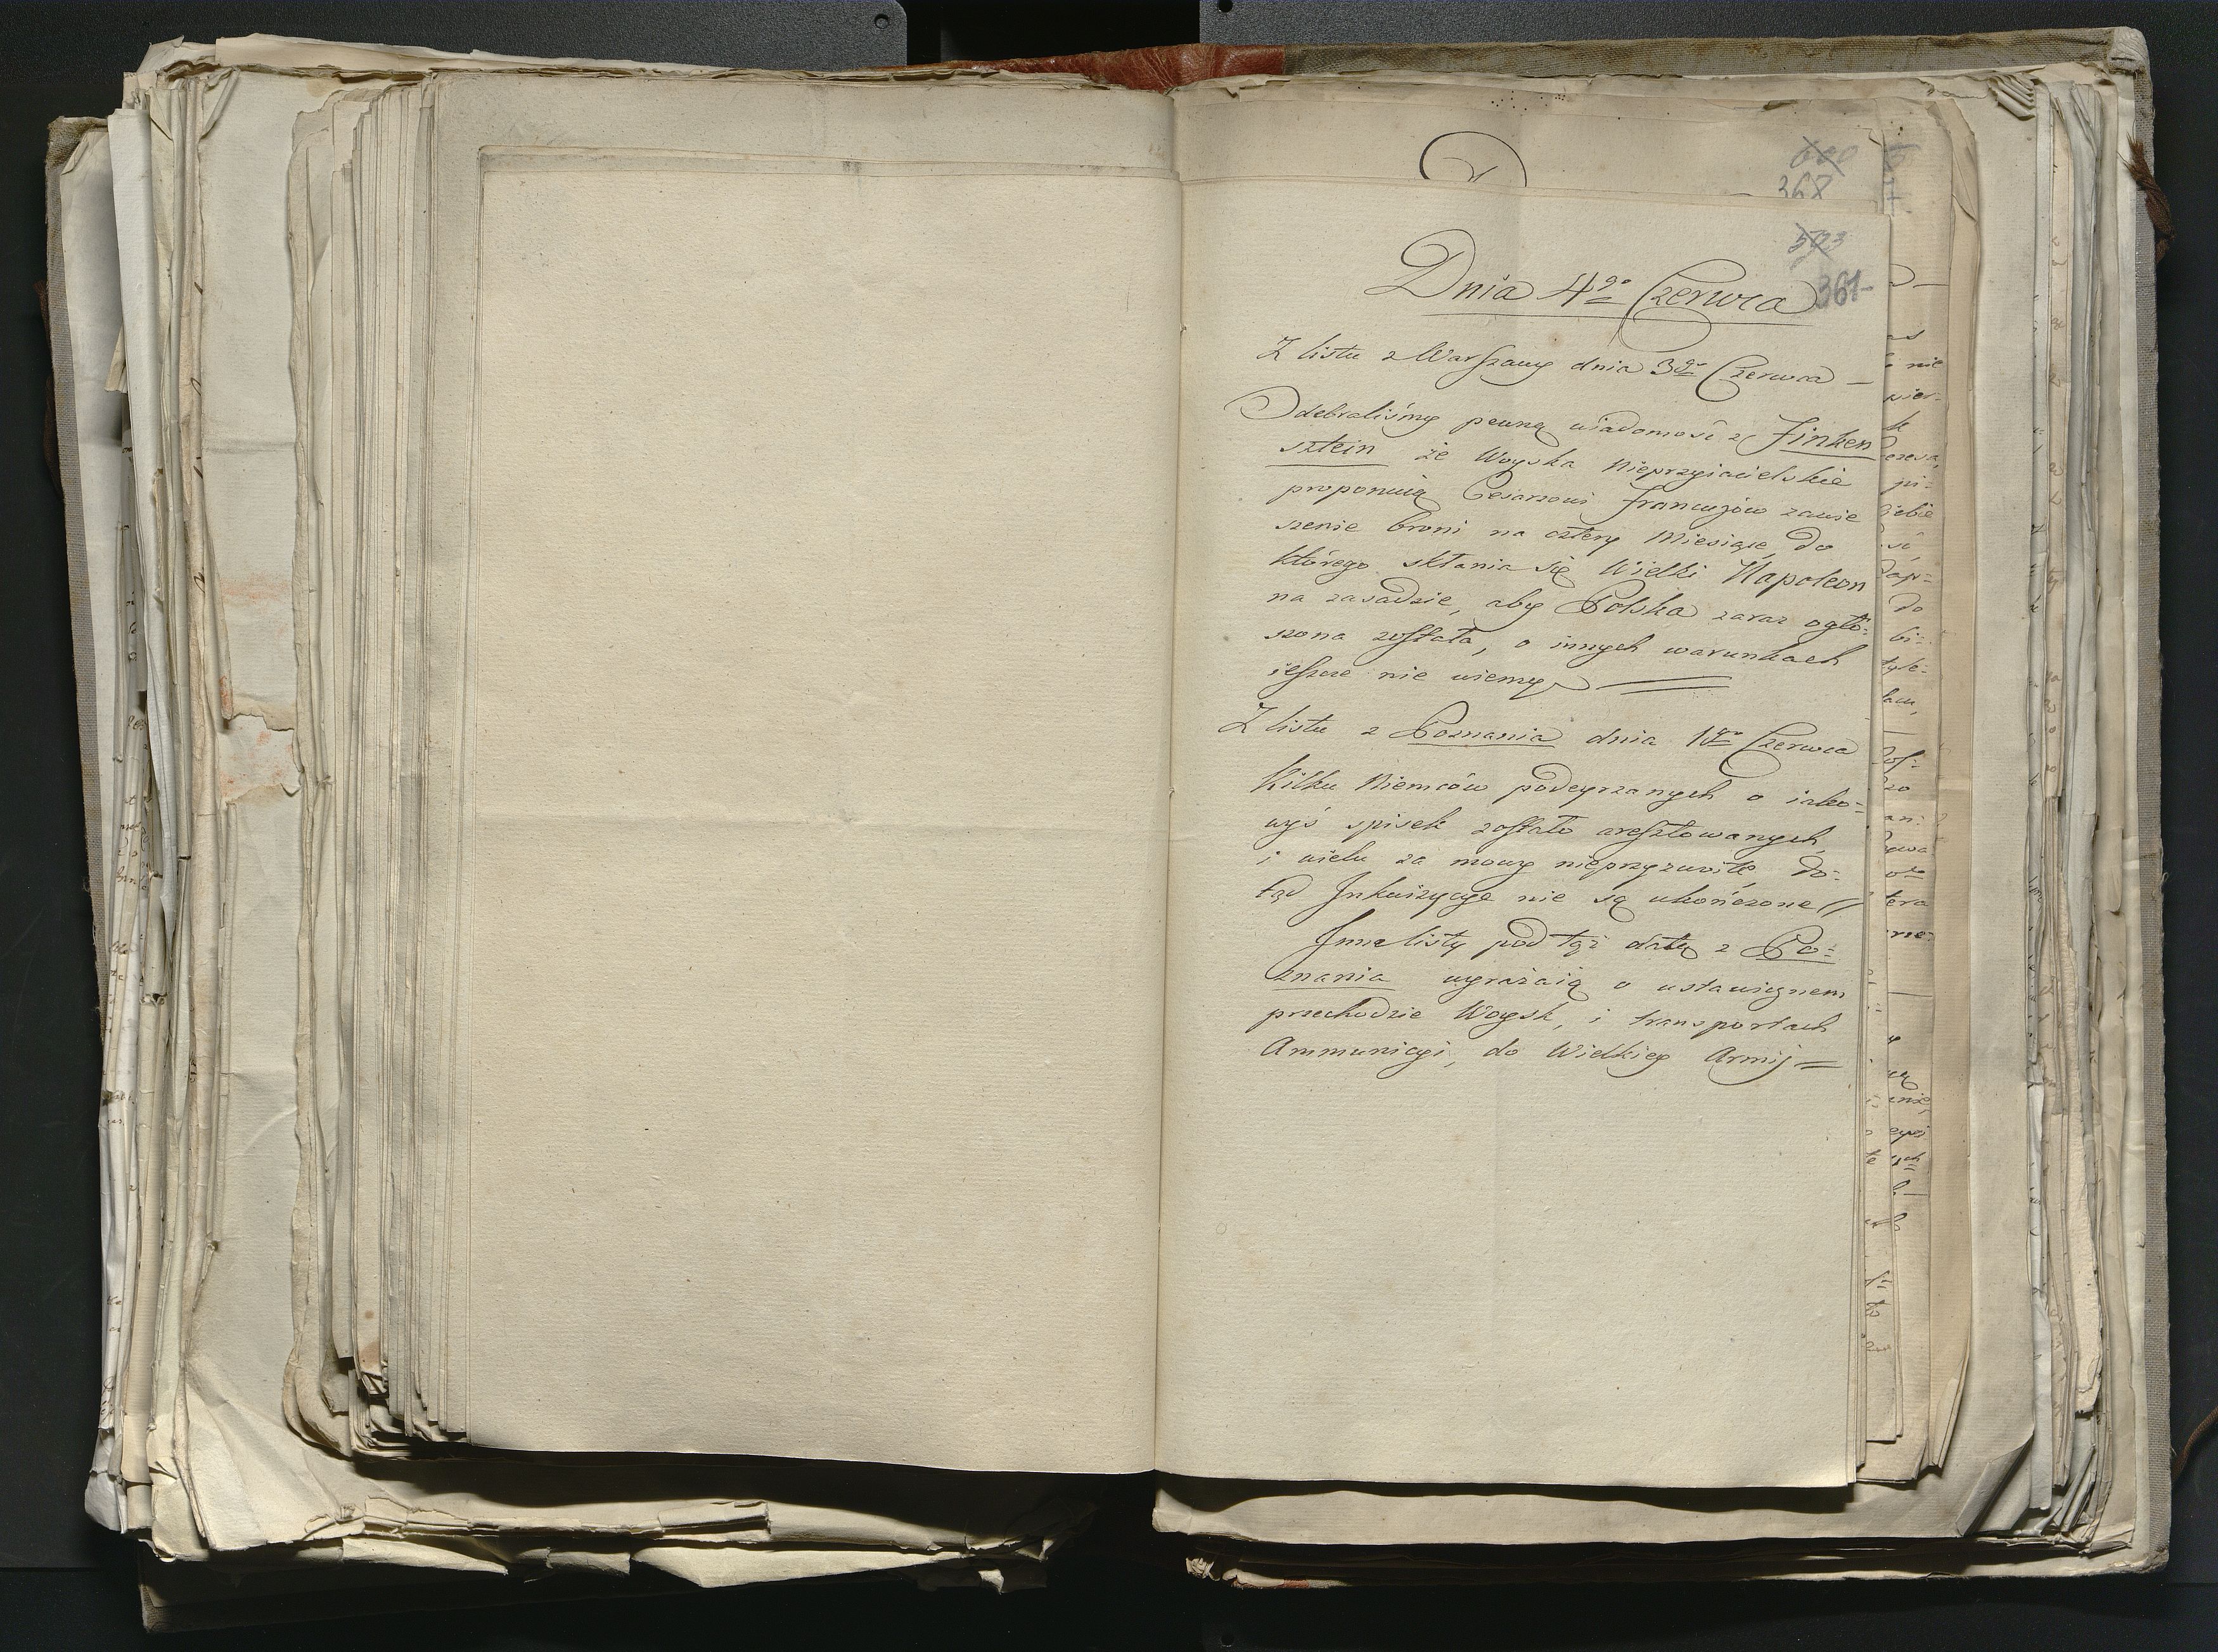 600
367
503
361
Dnia 4go Czerwca
Z listu z Warszawy dnia 3go Czerwca —
Odebraliśmy pewną wiadomość z Finken
sztein że Woyska Nieprzyiacielskie
proponuią Cesarzowi francuzów zawie
szenie broni na cztery Miesiące, do
którego skłania się Wielki Napoleon
na zasadzie, aby Polska zaraz ogło-
szona została, o innych warunkach
ieszcze nie wiemy
Z listu z Poznania dnia 1go Czerwca
Kilku Niemców podeyrzanych o iako-
wyś spisek zostało aresztowanych,
i wielu za mowy nieprzyzwoite, do-
tąd Inkwizycye nie są ukończone //
Inne listy pod tąż datą z Po-
znania wyrażaią o ustawicznem
przechodzie Woysk, i transportach
Ammunicyi, do Wielkiey Armij =